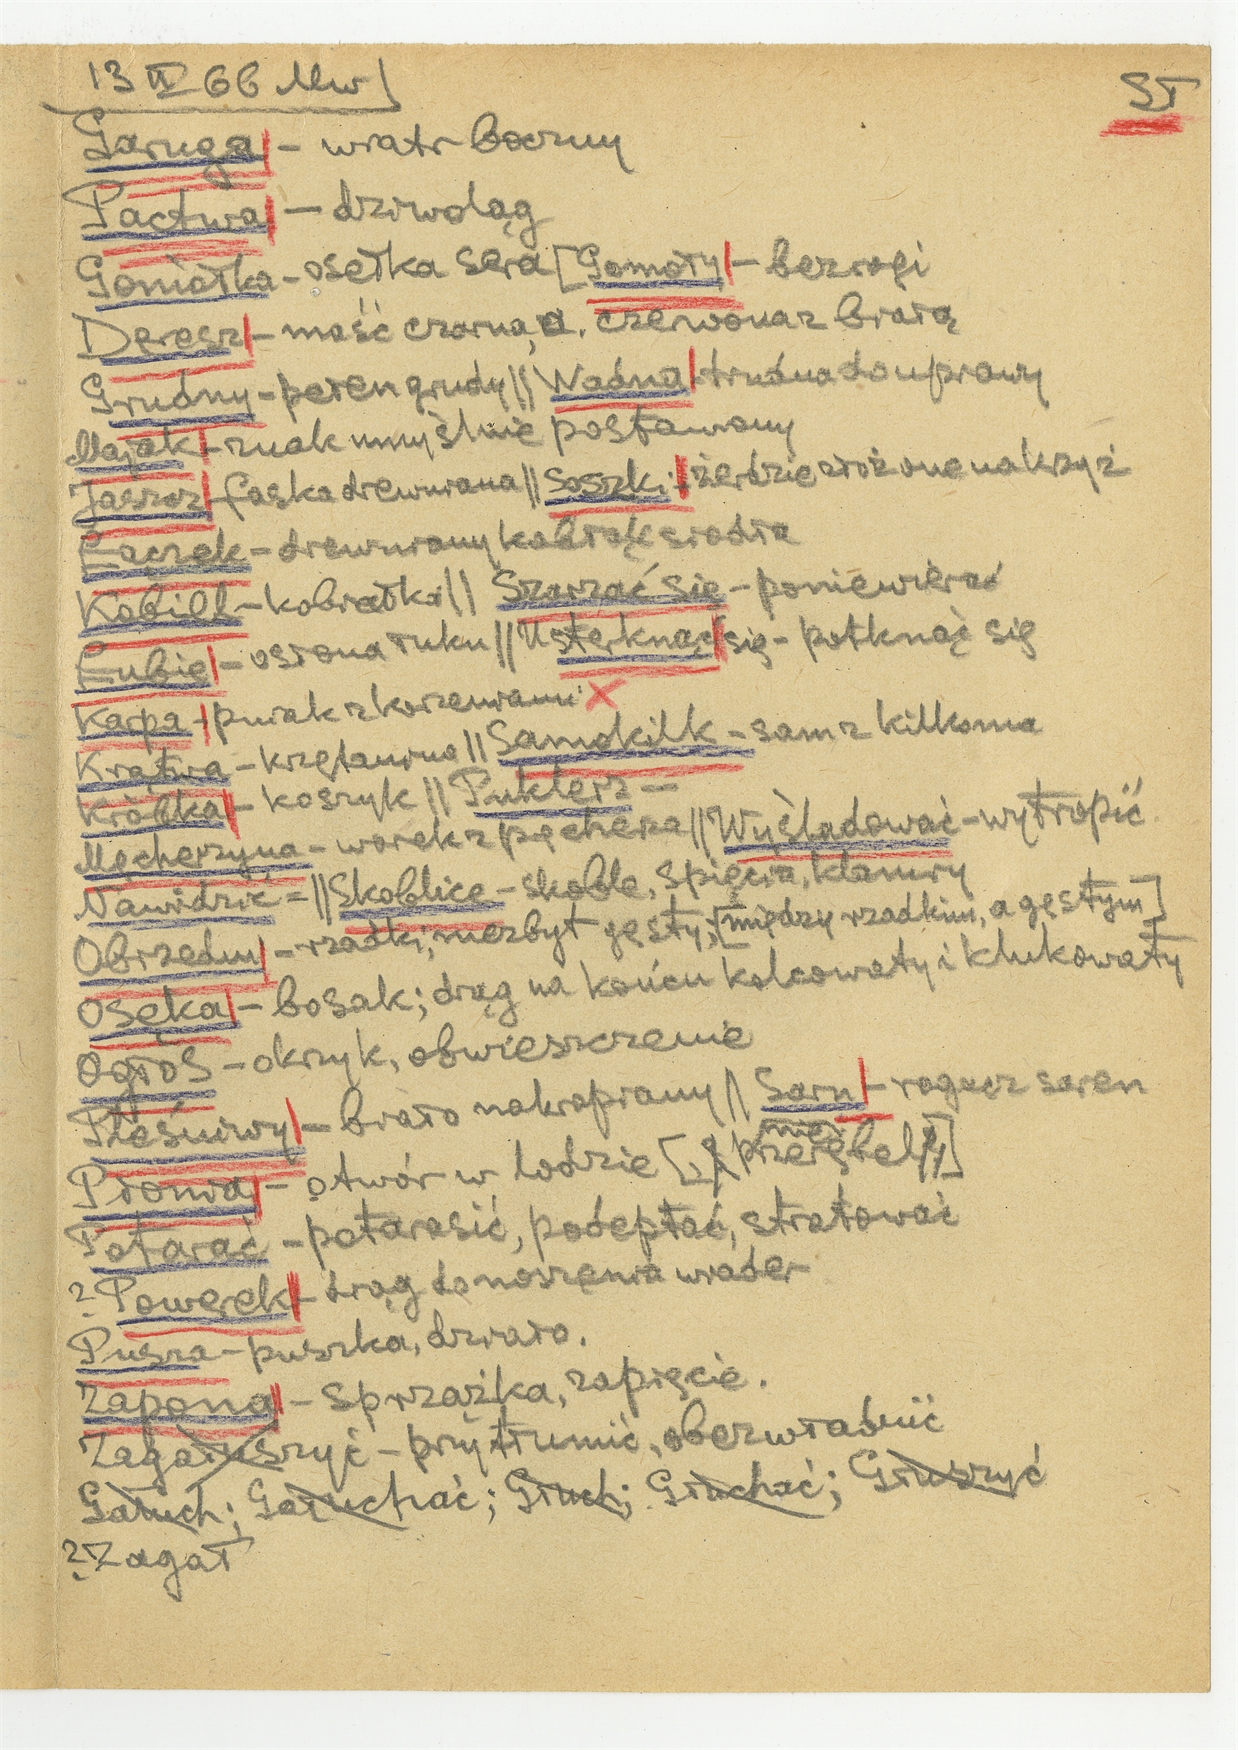 13 IV 66 Mw ST
Garuga – wiatr boczny
Pactwa – dziwoląg
Gomółka – osełka sera [Gomoły – bezrogi
Deresz – maść czarna, a. czerwona z białą
Grudny – pełen grudy || Wadna – trudna do uprawy
Majak – znak umyślnie postawiony
Jaszcz – faska drewniana || Soszki – żerdzie złożone na krzyż
Łączek – drewniany kabłąk siodła
Kobiel – kobiałka || Szarzać się – poniewierać
Łubie – osłona łuku || Usterknąć się – potknąć się
Karpa – pniak z korzeniami
Krątwa – krzętanina || Samokilk – sam z kilkoma
Króbka – koszyk || Puklerz –
Mecherzyna – worek z pęcherza || Wyśladować – wytropić
Nawidzić = || Skoblice – skoble, spięcia, klamry
Obrzedni – rzadki, niezbyt gęsty, [między rzadkim, a gęstym]
Osęka – bosak; drąg na końcu kolcowaty i klukowaty
Ogłos – okrzyk, obwieszczenie
Pleśniwy – biało nakrapiany || Sarn – rogacz saren
Płonia – otwór w lodzie [„przerębel"]
Potarać – potarasić, podeptać, stratować
? Powerek – drąg do noszenia wiader
Pusza – puszka, działo.
Zapona – sprzążka, zapięcie.
Zagałuszyć – przytłumić, obezwładnić
Gałuch; Gałuchać; Głuch; Głuchać; Głuszyć
? Zagał